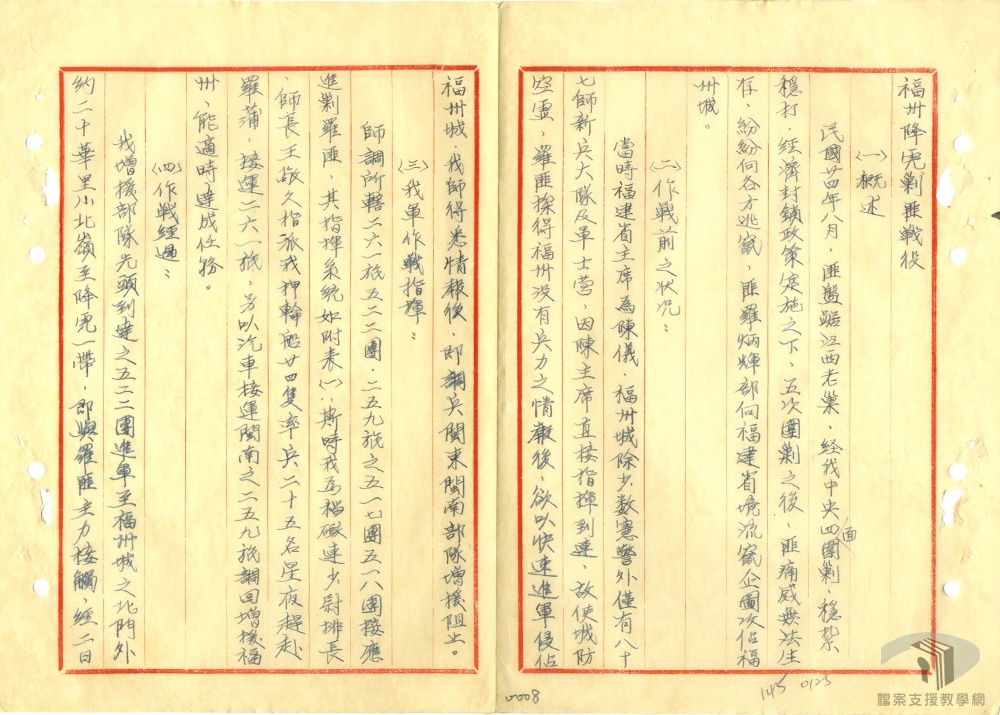 福州降虎剿匪戰役
(一)概述
民國廿四年八月，匪盤踞江西老巢，經我中央四面圍剿，穩紮
穩打，經濟封鎖政策實施之下，五次圍剿之後，匪痛感無法生
存，紛紛向各方逃竄，匪羅炳輝部向福建省境流竄企圖攻佔福
州城。
(二)作戰前之狀況：
當時福建省主席為陳儀，福州城除少數憲警外僅有八十
七師新兵大隊及軍士營，因陳主席直接指揮到連，故使城防
空虛，羅匪探得福州沒有兵力之情報後，欲以快速進軍侵佔
福州城，我師得悉情報後，即調兵閩東閩南部隊增援阻止。
(三)我軍作戰指揮：
師調所轄二六一旅五二二團，二五九旅之五一七團五一八團接應
進剿羅匪，其指揮系統如附表(一)，斯時我為榴礮連少尉排長
，師長王敬久指派我押輪船廿四隻率兵二十五名星夜趕赴
羅蒲，接運二六一旅，另以汽車接運閩南之二五九旅調回增援福
州，能適時達成任務。
(四)作戰經過：
我增機部隊先頭到達之五二二團進軍至福州城之北門外
約二十華里小北嶺至降虎一帶，即與羅匪主力接觸，經二日
0008
145
0125
檔案支援教學網